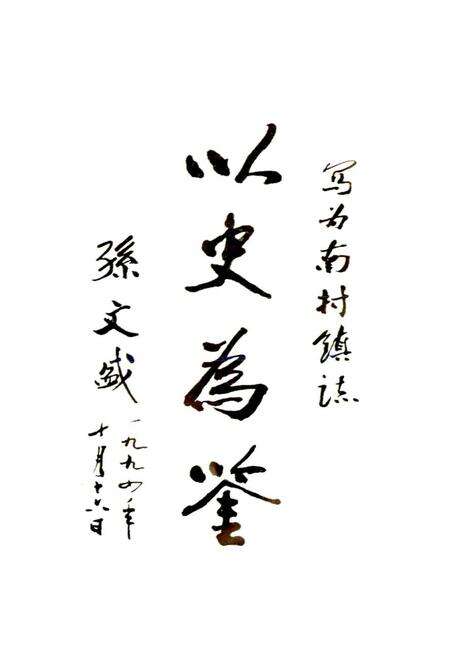 写为南村鎮誌
以史為鉴
孫文盛
一九九四年
十月十六日